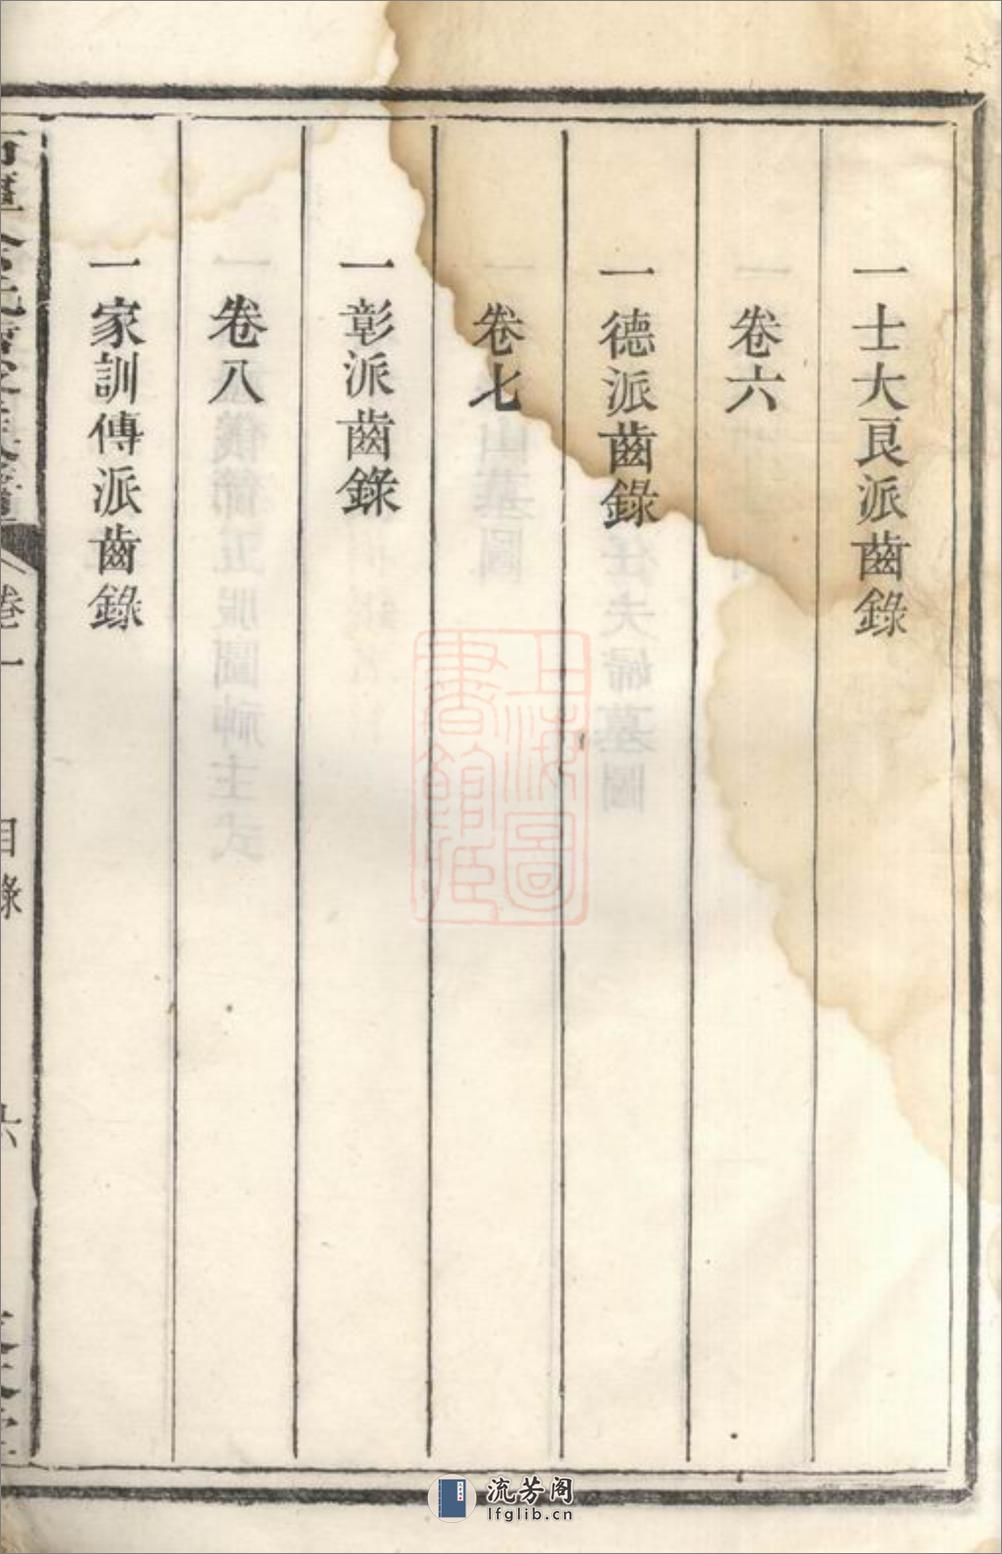 一士大良派齒錄
卷六
一德派齒錄
卷七
一彰派齒錄
卷八
一家訓傳派齒錄
卷一
目錄
六
上海圖書館藏
流芳阁
lfglib.cn